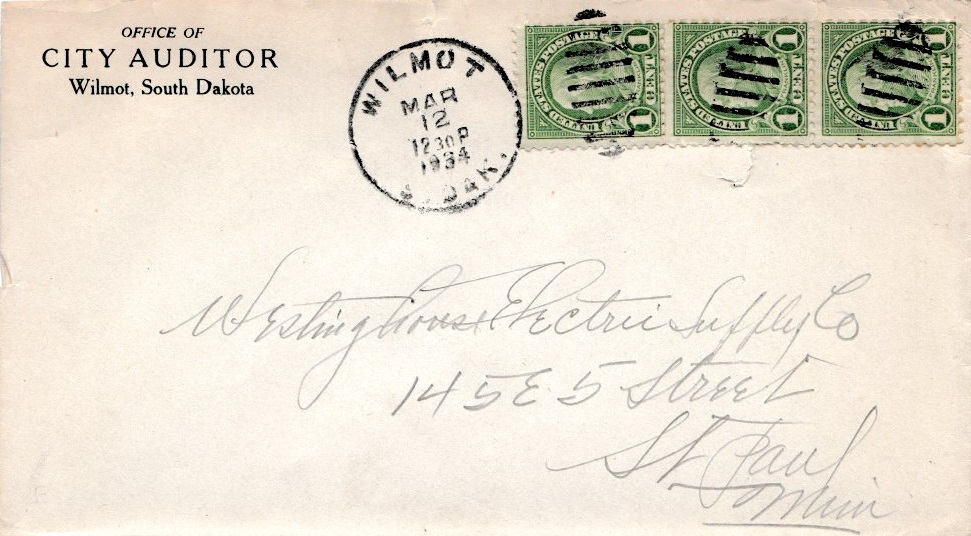 OFFICE OF
CITY AUDITOR
Wilmot, South Dakota
WILMOT
MAR
12
12 30 P
1934
S. DAK.
UNITED STATES POSTAGE
1 CENT 1
UNITED STATES POSTAGE
1 CENT 1
UNITED STATES POSTAGE
1 CENT 1
Westinghouse Electric Supply Co
145 E 5 Street
St Paul
Minn